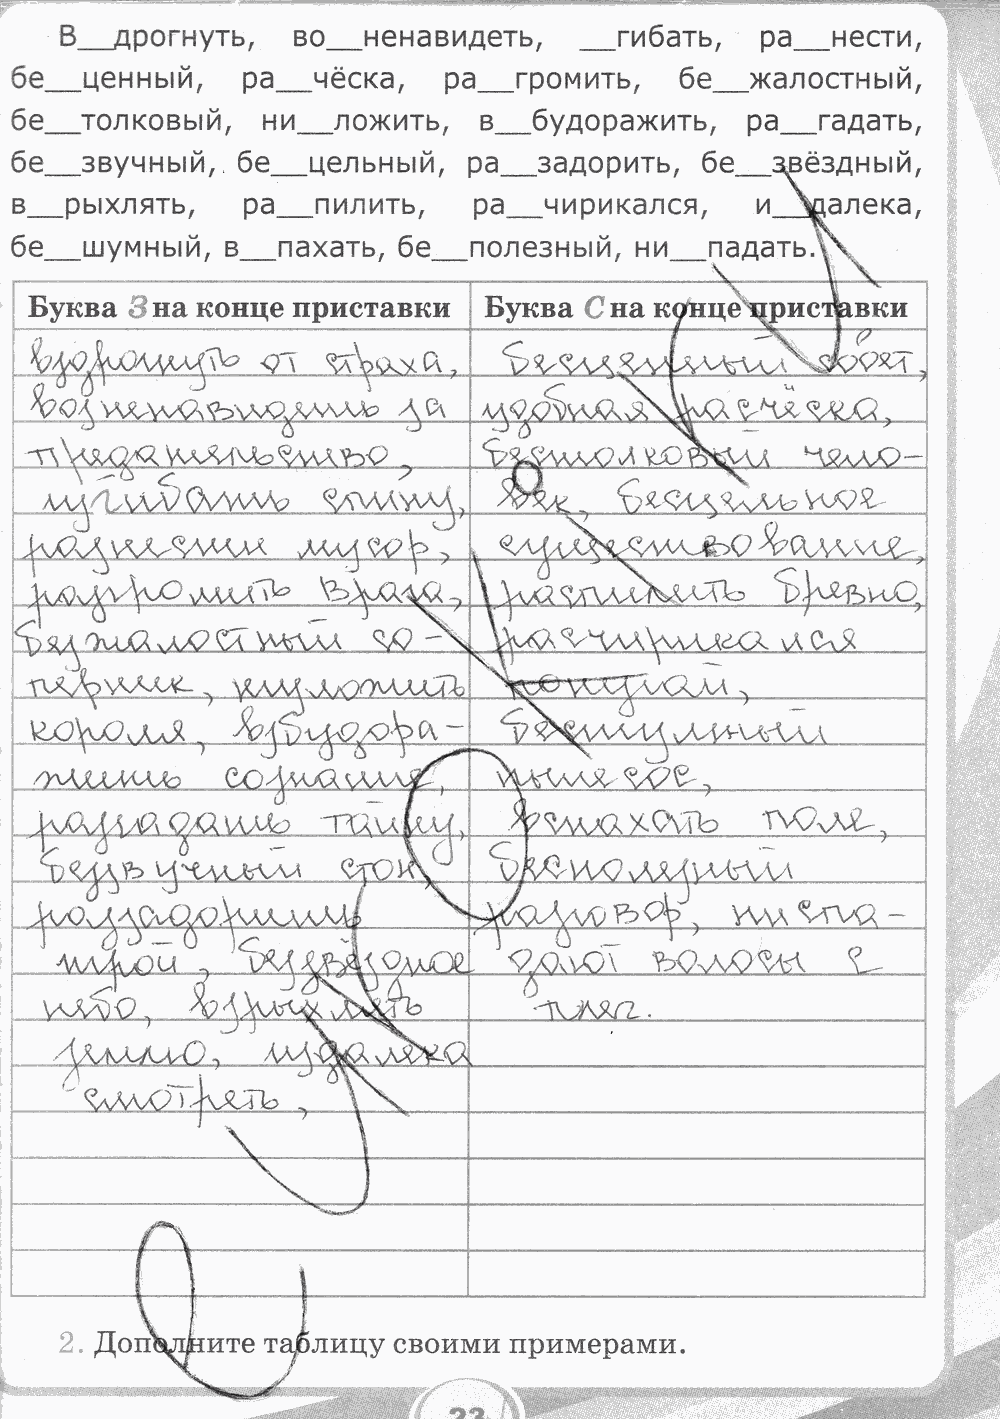 В__дрогнуть, во__ненавидеть, __гибать, ра__нести,
бе__ценный, ра__чёска, ра__громить, бе__жалостный,
бе__толковый, ни__ложить, в__будоражить, ра__гадать,
бе__звучный, бе__цельный, ра__задорить, бе__звёздный,
в__рыхлять, ра__пилить, ра__чирикался, и__далека,
бе__шумный, в__пахать, бе__полезный, ни__падать.
Буква З на конце приставки
вздрогнуть от страха,
возненавидеть за
предательство,
изгибать спину,
разнести мусор,
разгромить врага,
безжалостный со-
перник, низложить
короля, взбудора-
жить сознание,
разгадать тайну,
беззвучный стон,
раззадорить
трой, беззвёздное
небо, взрыхлять
землю, издалека
смотреть,
Буква С на конце приставки
бесценный совет,
удобная расчёска,
бестолковый чело-
век, бесцельное
существование,
распилить бревно,
расчирикался
попугай,
бесшумный
пылесос,
вспахать поле,
бесполезный
разговор, ниспа-
дают волосы с
плеч.
2. Дополните таблицу своими примерами.
23